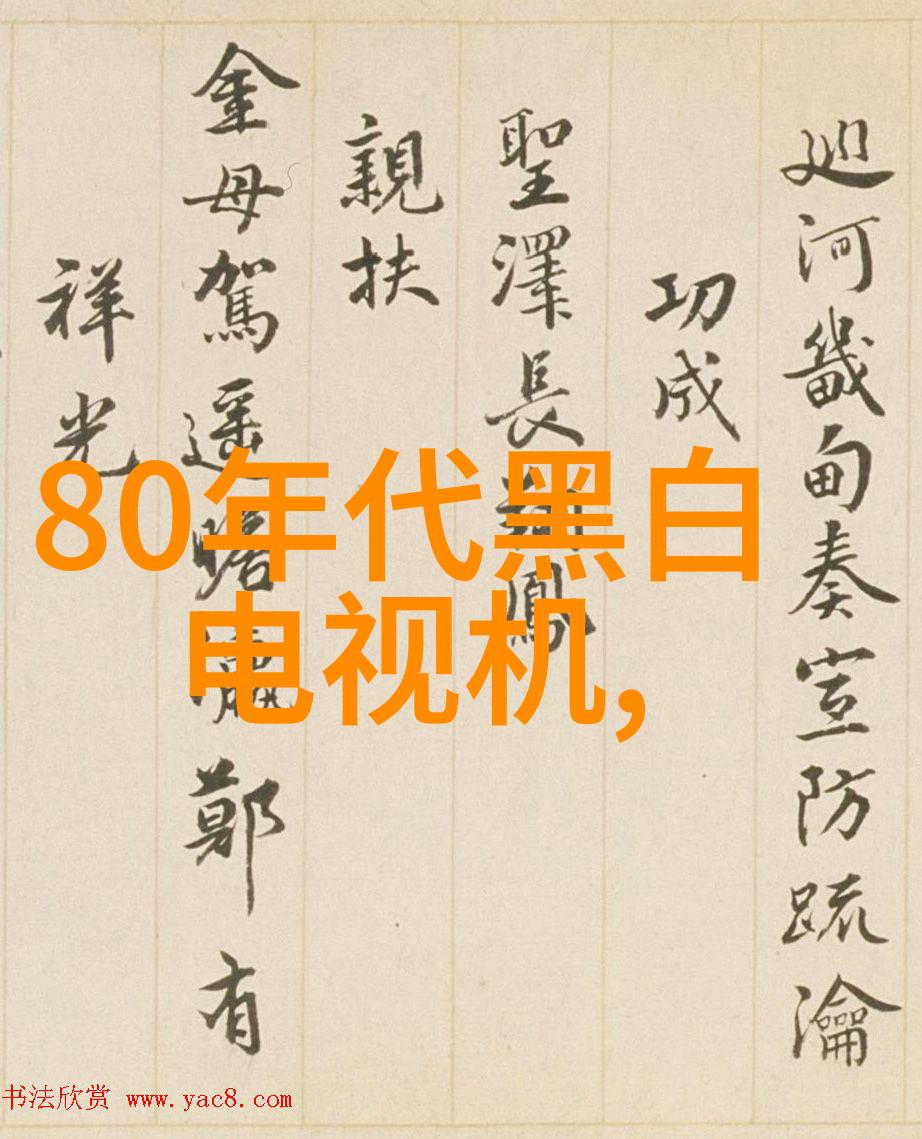 廵河畿甸奏宣防疏瀹
功成
聖澤長翔鳳
親扶
金母駕遥瞻瀛鄭有
祥光
80年代黑白
电视机,
书法欣赏 www.yac8.com